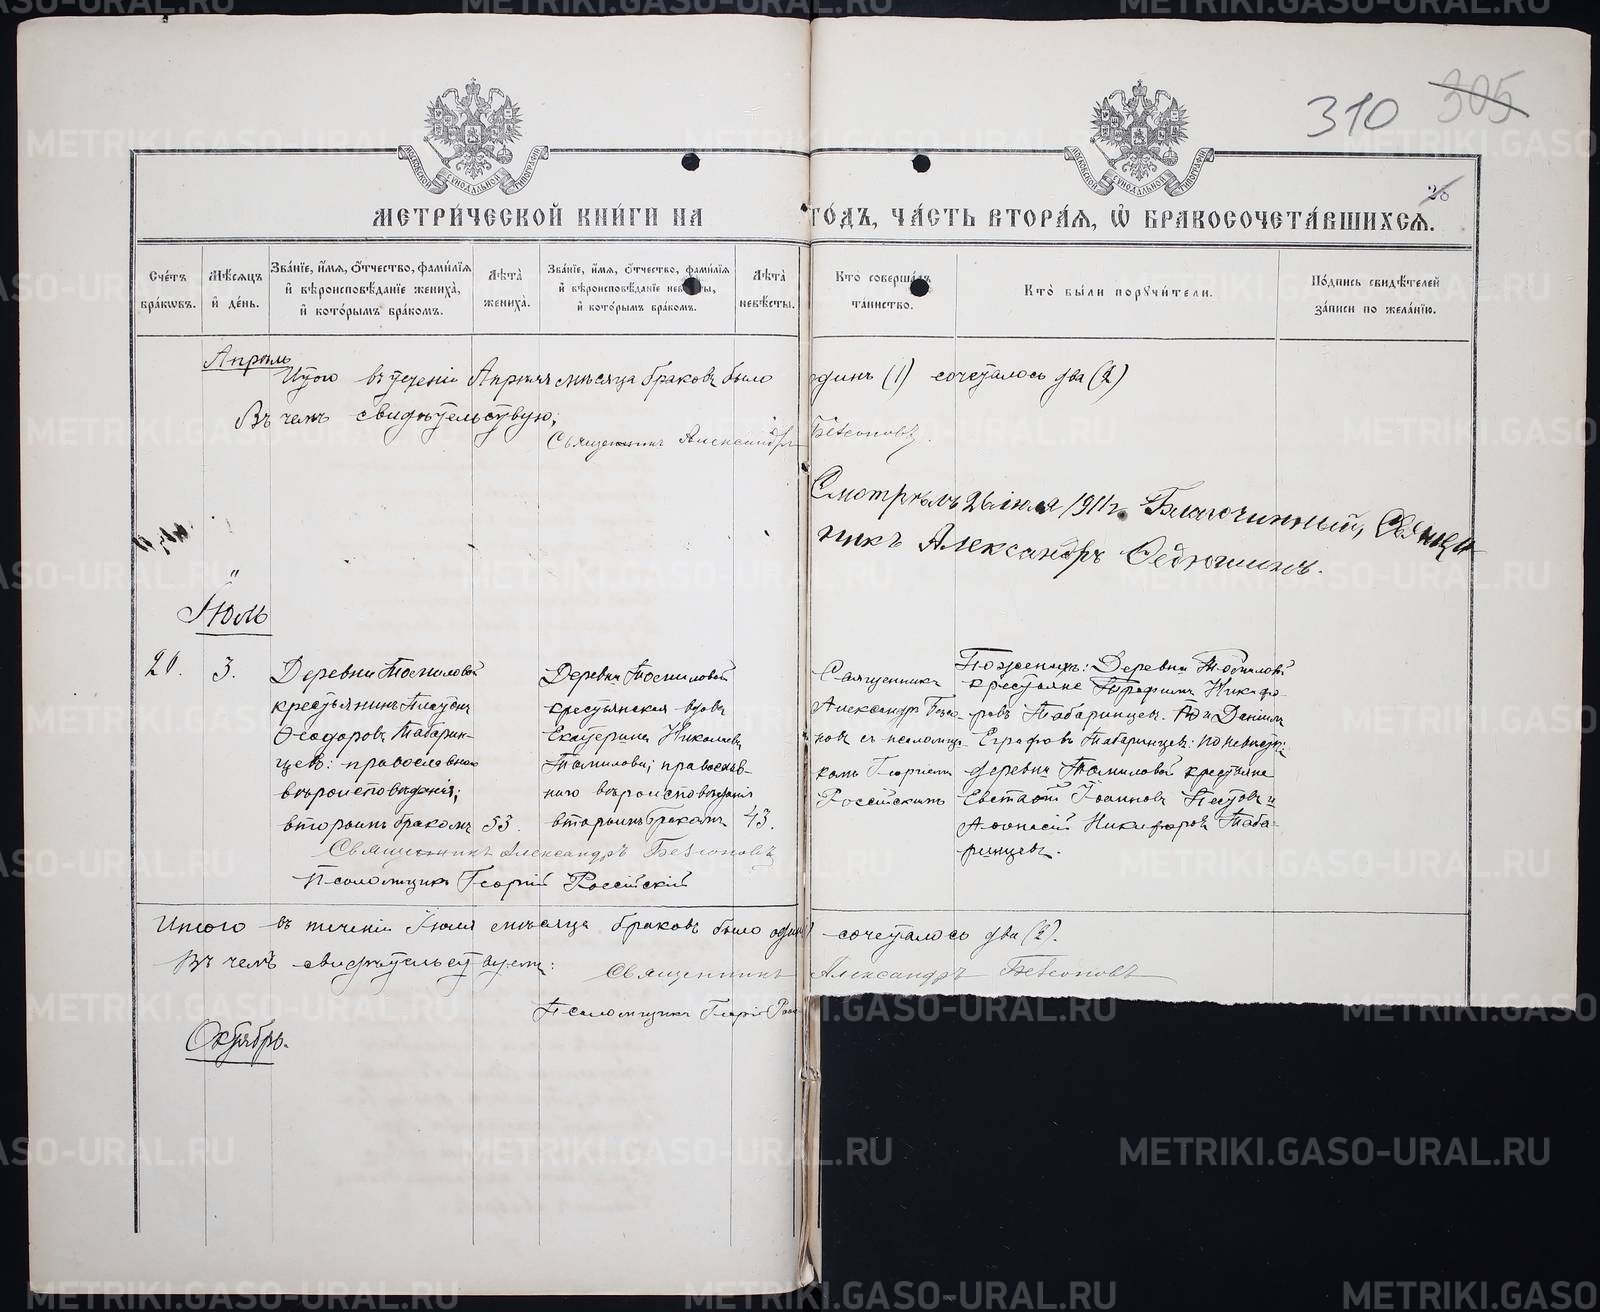 310 305
26
МЕТРИЧЕСКОЙ КНИГИ НА ГОДЪ, ЧАСТЬ ВТОРАЯ, Ѡ БРАКОСОЧЕТАВШИХСЯ.
Счетъ браковъ.
Мѣсяцъ и день.
Званіе, имя, отчество, фамилія и вѣроисповѣданіе жениха, и которымъ бракомъ.
Лѣта жениха.
Званіе, имя, отчество, фамилія и вѣроисповѣданіе невѣсты, и которымъ бракомъ.
Лѣта невѣсты.
Кто совершалъ таинство.
Кто были поручители.
Подпись свидѣтелей записи по желанію.
Апрѣль
Итого въ теченіи Апрѣля мѣсяца браковъ было одинъ (1) сочеталось два (2)
Въ чемъ свидѣтельствую;
Священникъ Александръ Безсоновъ.
Смотрѣлъ 26 июля 1911 г. Благочинный, Священ
никъ Александръ Федюшинъ.
Іюль
20. 3.
Деревни Томиловой
крестьянинъ
Ѳеодоровъ Табарин-
цевъ: православнаго
вѣроисповѣданія;
вторымъ бракомъ 53.
Деревни Томиловой
крестьянская вдова
Екатерина Николаева
Томилова; православ-
наго вѣроисповѣданія
вторымъ бракомъ 43.
Священникъ
Александръ Безсо-
новъ съ псаломщи-
комъ Георгіемъ
Россійскимъ
По женихѣ: Деревни Томиловой
крестьяне Трофимъ Никифо-
ровъ Табаринцевъ. Даніилъ
Евграфовъ Табаринцевъ: по невѣстѣ:
деревни Томиловой крестьяне
Евстафій Іоанновъ
Аѳонасій Никифоровъ Таба-
ринцевъ.
Священникъ Александръ Безсоновъ
Псаломщикъ Георгій Россійскій
Итого въ теченіи Іюля мѣсяца браковъ было одинъ сочеталось два (2).
Въ чемъ свидѣтельствуемъ:
Священникъ Александръ Безсоновъ
Псаломщикъ Георгій
Октябрь.